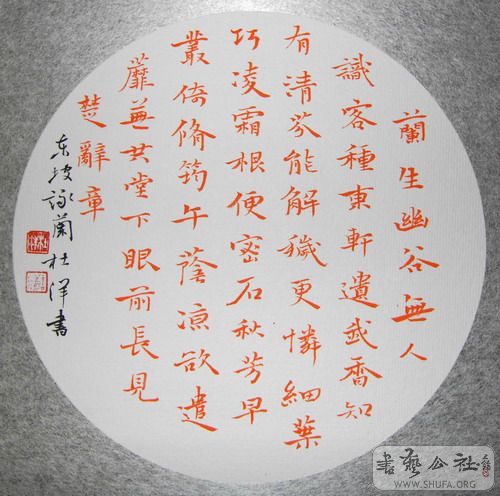 蘭生幽谷無人
識客種東軒遺我香知
有清芬能解穢更憐細葉
巧凌霜根便密石秋芳早
叢倚脩筠午蔭凉欲遣
蘼蕪共堂下眼前長見
楚辭章
东坡詠蘭杜洋書
書藝公社
WWW.SHUFA.ORG